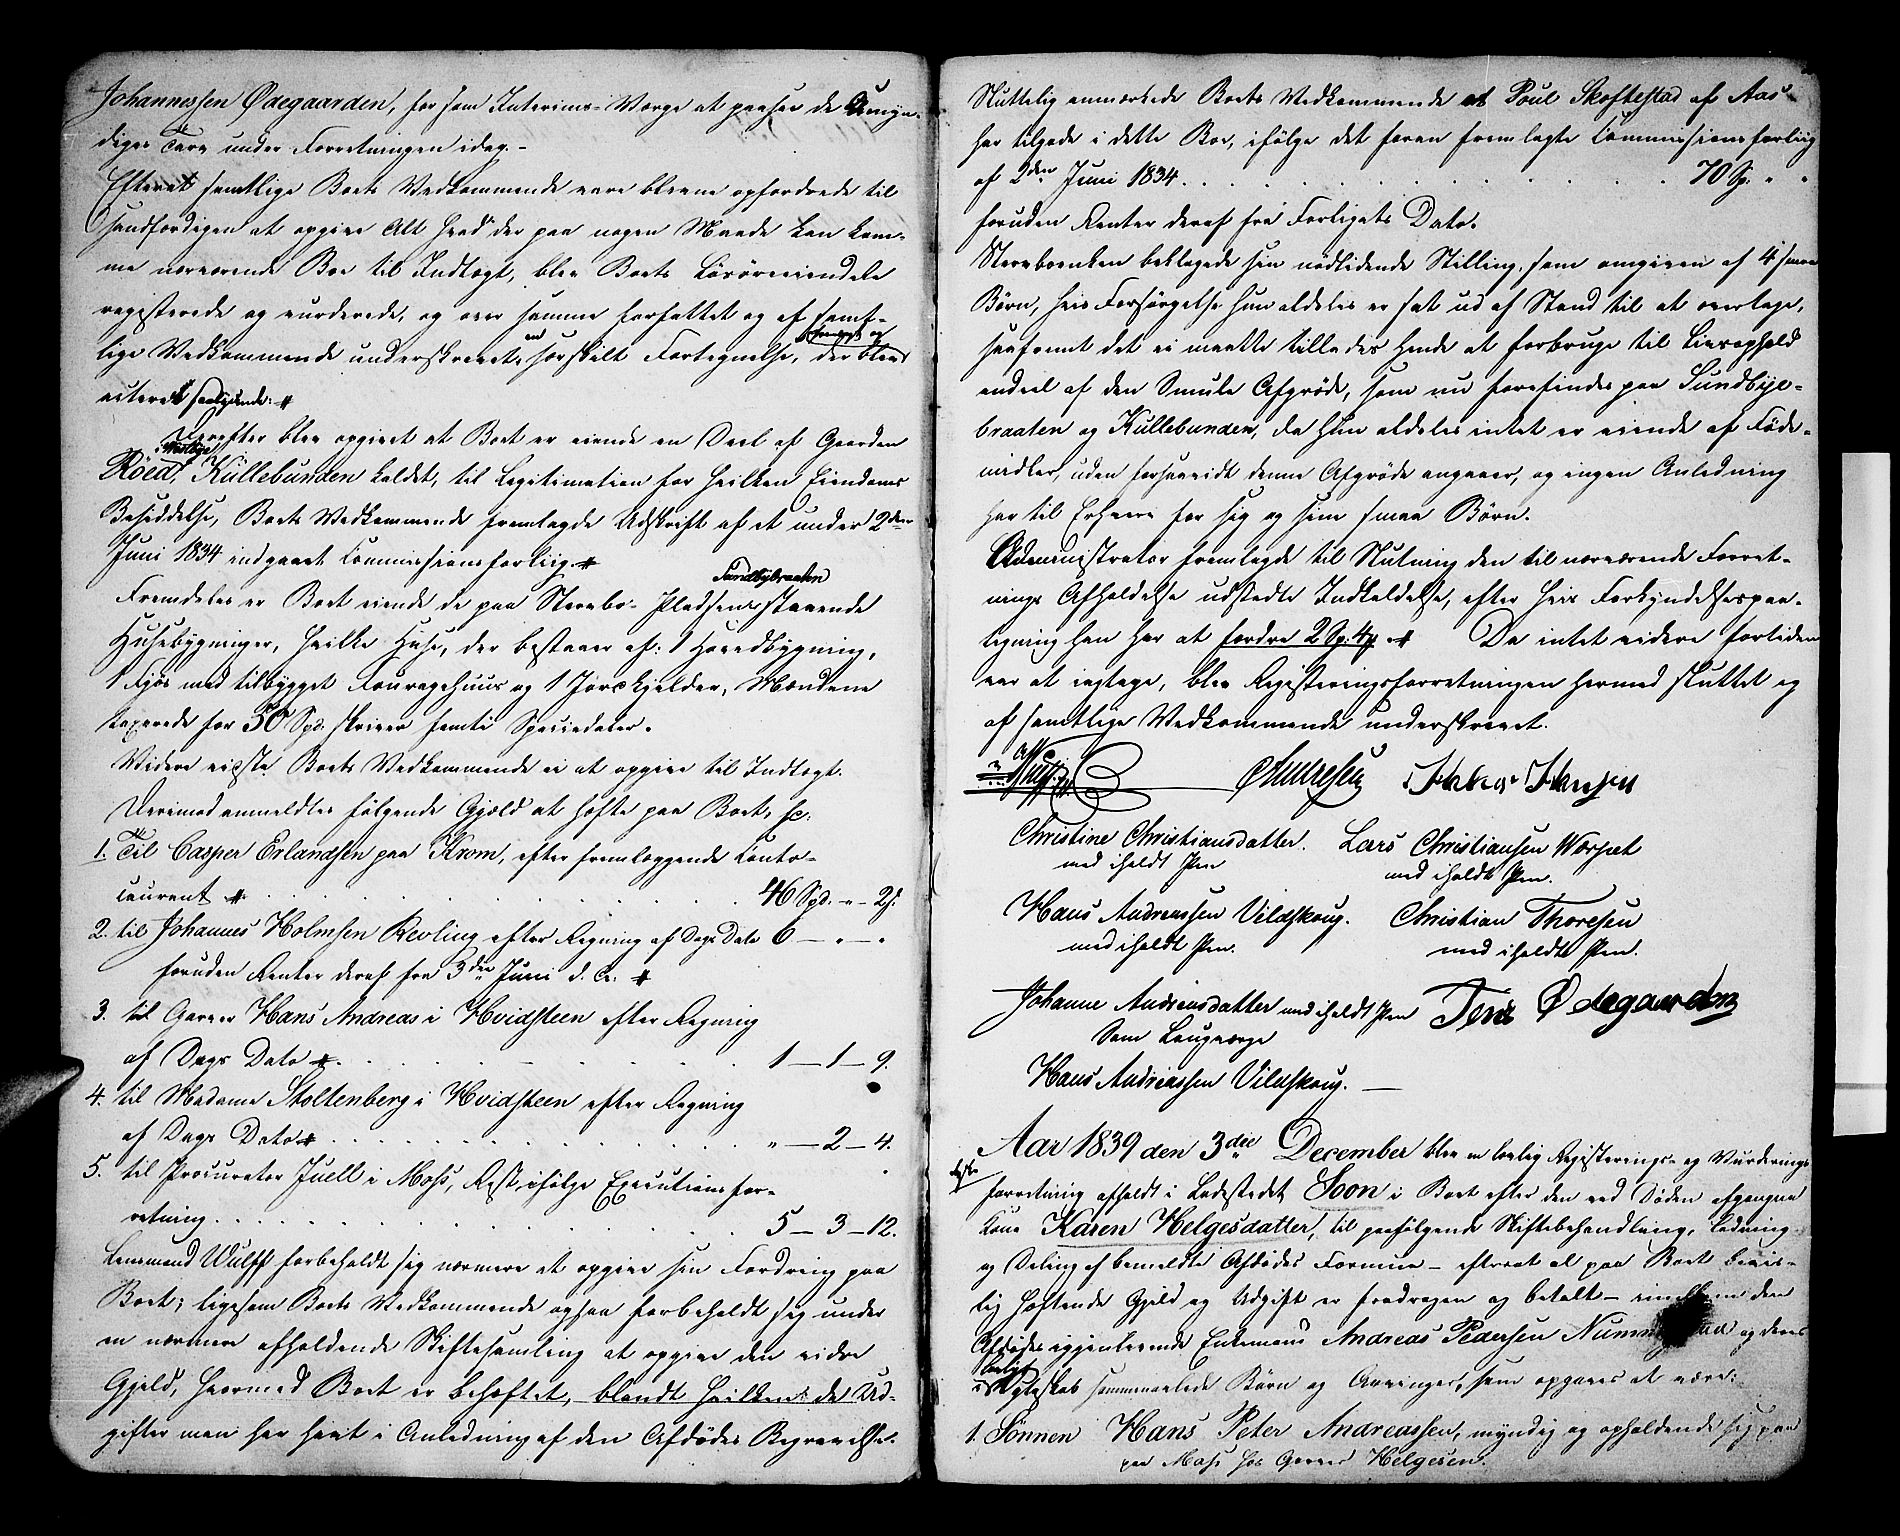 Johannessen Ødegaarden, for som Interims-Værge at paasee de Umyn-
diges Tarv under Forretningen idag.-
Efterat samtlige Boets Vedkommende vare blevne opfordrede til
sandfærdigen at opgive Alt hvad der paa nogen Maade kan kom-
me nærværende Boe til Indtægt, blev Boets Løsøreeiendele
registerede og vurderede, og over samme forfattet og af samt-
lige Vedkommende underskrevet en særskilt Fortegnelse, der blev
acteret saalydende:
Derefter blev opgivet at Boet er eiende en Deel af Gaarden
Röed, Küllebunden kaldet, til Legitimation for hvilken Eiendoms
Besiddelse, Boets Vedkommende fremlagde Udskrift af et under 2den
Juni 1834 indgaaet Commissionsforliig
Sundbybraaten
Fremdeles er Boet eiende de paa Stervbo-Pladsens staaende
Huusebygninger, hvilke Huse, der bestaaer af: 1 Hovedbygning,
1 Fjøs med tilbygget Fouragehuus og 1 Jordkjelder, Mændene
taxerede for 50 Spd. skriver femti Speciedaler.
Videre vidste Boets Vedkommende ei at opgive til Indtægt.
Derimod anmeldtes følgende Gjæld at hæfte paa Boet, sc:
1. Til Casper Erlandsen paa Krom, efter fremlæggende Conto-
courant . . . 46 Spd. - " - 2 s.
2. til Johannes Holmsen Revling efter Regning af Dags Dato 6 - " - "
foruden Renter deraf fra 3die Juni d. A.
3. til Garver Hans Andreas i Hvidsteen efter Regning
af Dags Dato . . . 1 - 1 - 9.
4. til Madame Stoltenberg i Hvidsteen efter Regning
af Dags Dato . . . " - 2 - 4.
5. til Procurator Juell i Moss, Rest, ifølge Executionsfor-
retning . . . 5 - 3 - 12.
Lensmand Wulff forbeholdt sig nærmere at opgive sin Fordring paa
Boet; ligesom Boets Vedkommende ogsaa forbeholdt sig under
en nærmere afholdende Skiftesamling at opgive den videre
Gjeld, hvormed Boet er behæftet, blandt hvilken de Ud-
gifter man har havt i Anledning af den Afdødes Begravelse.
Sluttelig anmærkede Boets Vedkommende at Poul Skoftestad af Aas
har tilgode i dette Boe, ifølge det foran fremlagte Commissionsforliig
af 2den Juni 1834 . . . 70 Sp. " "
foruden Renter deraf fra Forligets Dato.
Stervboenken beklagede sin nødlidende Stilling, som omgiven af 4 smaa
Børn, hvis Forsørgelse hun aldeles er sat ud af Stand til at overtage,
saafremt det ei maatte tillades hende at forbruge til Livsophold
endeel af den Smule Afgrøde, som nu forefindes paa Sundbye-
braaten og Kullebunden, da hun aldeles intet er eiende af Føde-
midler, uden forsaavidt denne Afgrøde angaaer, og ingen Anledning
har til Erhverv for sig og sine smaa Børn.
Administrator fremlagde til Slutning den til nærværende Forret-
nings Afholdelse udstedte Indkaldelse, efter hvis Forkyndelsespaa-
tegning han har at fordre 2 Sp. 4 s. Da intet videre fortiden
var at iagtage, blev Registeringsforretningen hermed sluttet og
af samtlige Vedkommende underskrevet.
Wulff Andresen Jakob Hansen
Christine Christiansdatter. Lars Christiansen Worpet
med iholdt Pen med iholdt Pen.
Hans Andreassen Vildskoug. Christian Thoresen
med iholdt Pen. med iholdt Pen.
Johanne Andreasdatter med iholdt Pen Jens Ødegaarden
Som Laugværge
Hans Andreassen Vildskoug.
Aar 1839 den 3die December blev en lovlig Registerings- og Vurderings
forretning afholdt i Ladestedet Soon i Boet efter den ved Døden afgangne
Kone Karen Helgesdatter, til paafølgende Skiftebehandling, Lodning
og Deling af bemeldte Afdødes Formue - efterat al paa Boet bevis-
lig hæftende Gjeld og Udgift er fradragen og betalt - imellem den
Afdødes igjenlevende Enkemand Andreas Pedersen og deres
i Ægteskab sammenavlede Børn og Arvinger, som opgaves at være:
1. Sønnen Hans Peter Andreassen, myndig og opholdende sig paa
paa Moss hos Garver Helgesen.